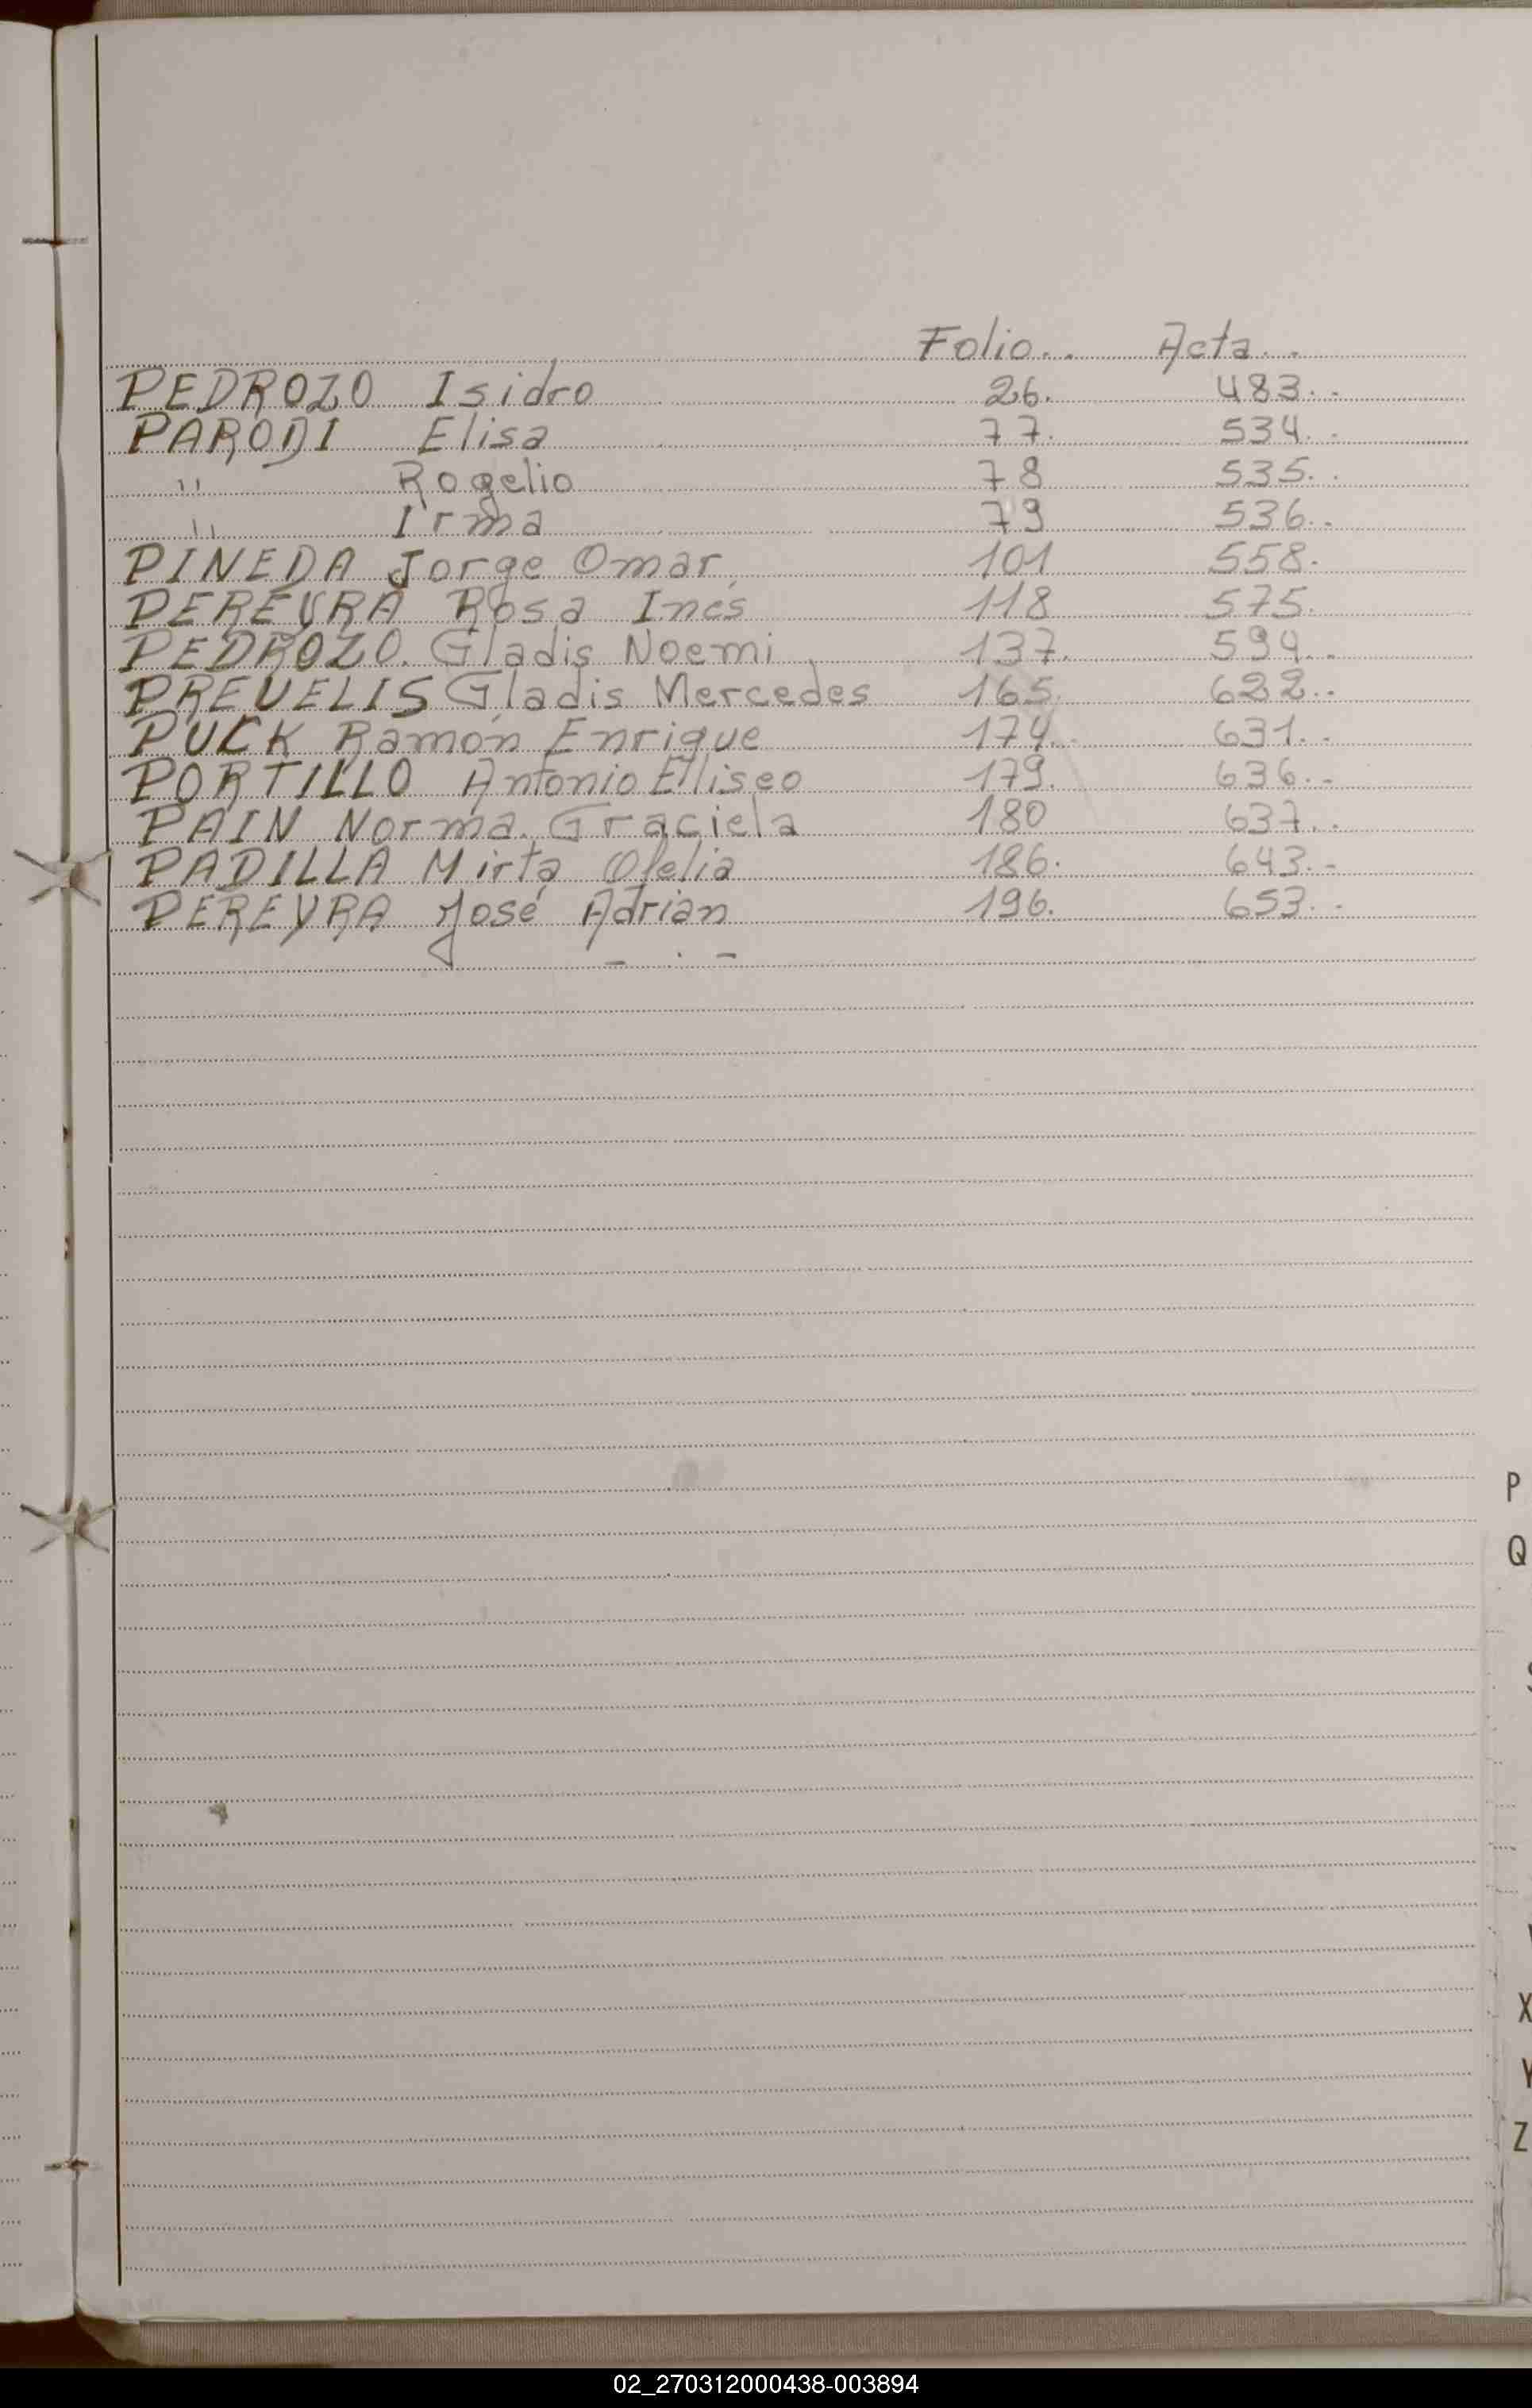 Folio.. Acta..
PEDROZO Isidro 26. 483..
PARODI Elisa 77. 534..
" Rogelio 78 535..
" Irma 79 536..
PINEDA Jorge Omar 101 558.
PEREYRA Rosa Inés 118 575.
PEDROZO. Gladis Noemi 137. 594..
PREVELIS Gladis Mercedes 165. 622..
PUCK Ramón Enrique 174.. 631..
PORTILLO Antonio Elliseo 179. 636..
PAIN Norma. Graciela 180 637..
PADILLA Mirta Ofelia 186. 643.-
PEREYRA José Adrian 196. 653..
- . -
P
Q
X
Y
Z
02_270312000438-003894